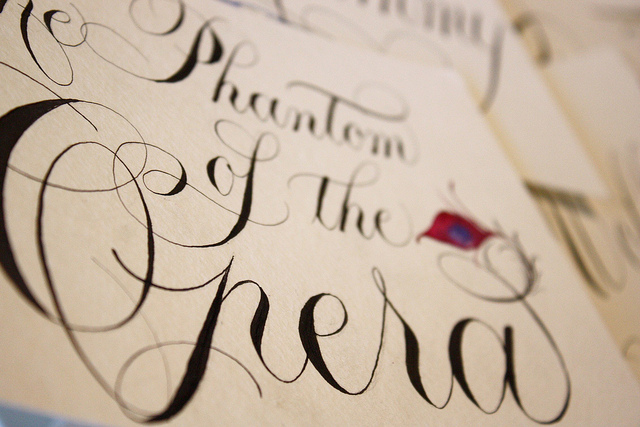 The Phantom
of the
Opera